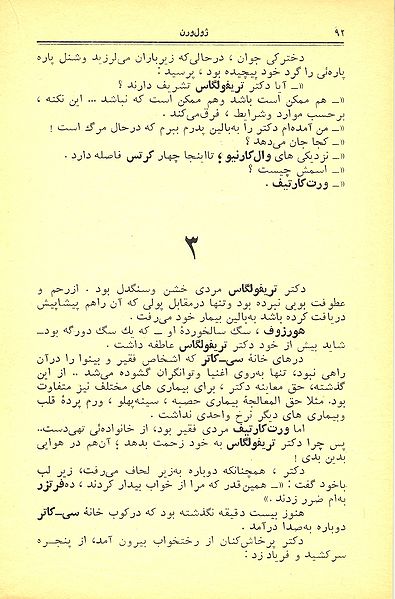 ۹۲
ژول‌ورن
دخترکی جوان ، درحالی‌که زیرباران می‌لرزید وشنل پاره
پاره‌ئی را گرد خود پیچیده بود ، پرسید :
«ــ آیا دکتر تریفولگاس تشریف دارند ؟
«ــ هم ممکن است باشد وهم ممکن است که نباشد ... این نکته ،
برحسب موارد وشرایط ، فرق‌می‌کند .
«ــ من آمده‌ام دکتر را به‌بالین پدرم ببرم که درحال مرگ است !
«ــ کجا جان می‌دهد ؟
«ــ نزدیکی های وال‌کارنیو ؛ تااینجا چهار کرتس فاصله دارد .
«ــ اسمش چیست ؟
«ــ ورت‌کارتیف .
۳
دکتر تریفولگاس مردی خشن وسنگدل بود . ازرحم و
عطوفت بویی نبرده بود وتنها درمقابل پولی که آن راهم پیشاپیش
دریافت کرده باشد به‌بالین بیمار خود می‌رفت .
هورزوف ، سگ سالخوردهٔ او ــ که یك سگ دورگه بودــ
شاید بیش از خود دکتر تریفولگاس عاطفه داشت .
درهای خانهٔ سی‌ــکاتر که اشخاص فقیر و بینوا را درآن
راهی نبود، تنها به‌روی اغنیا وتوانگران گشوده می‌شد .. از این
گذشته، حق معاینه دکتر ، برای بیماری های مختلف نیز متفاوت
بود. مثلا حق المعالجهٔ بیماری حصبه ، سینه‌پهلو ، ورم پردهٔ قلب
وبیماری های دیگر نرخ واحدی نداشت .
اما ورت‌کارتیف مردی فقیر بود، از خانواده‌ئی تهی‌دست..
پس چرا دکتر تریفولگاس به خود زحمت بدهد ؛ آن‌هم در هوایی
بدین بدی !
دکتر ، همچنانکه دوباره به‌زیر لحاف می‌رفت، زیر لب
باخود گفت : «ــ همین‌قدر که مرا از خواب بیدار کردند ، ده‌فرتزر
به‌ام ضرر زدند .»
هنوز بیست دقیقه نگذشته بود که درکوب خانهٔ سی‌ــکاتر
دوباره به‌صدا درآمد .
دکتر پرخاش‌کنان از رختخواب بیرون آمد، از پنجـره
سرکشید و فریاد زد :